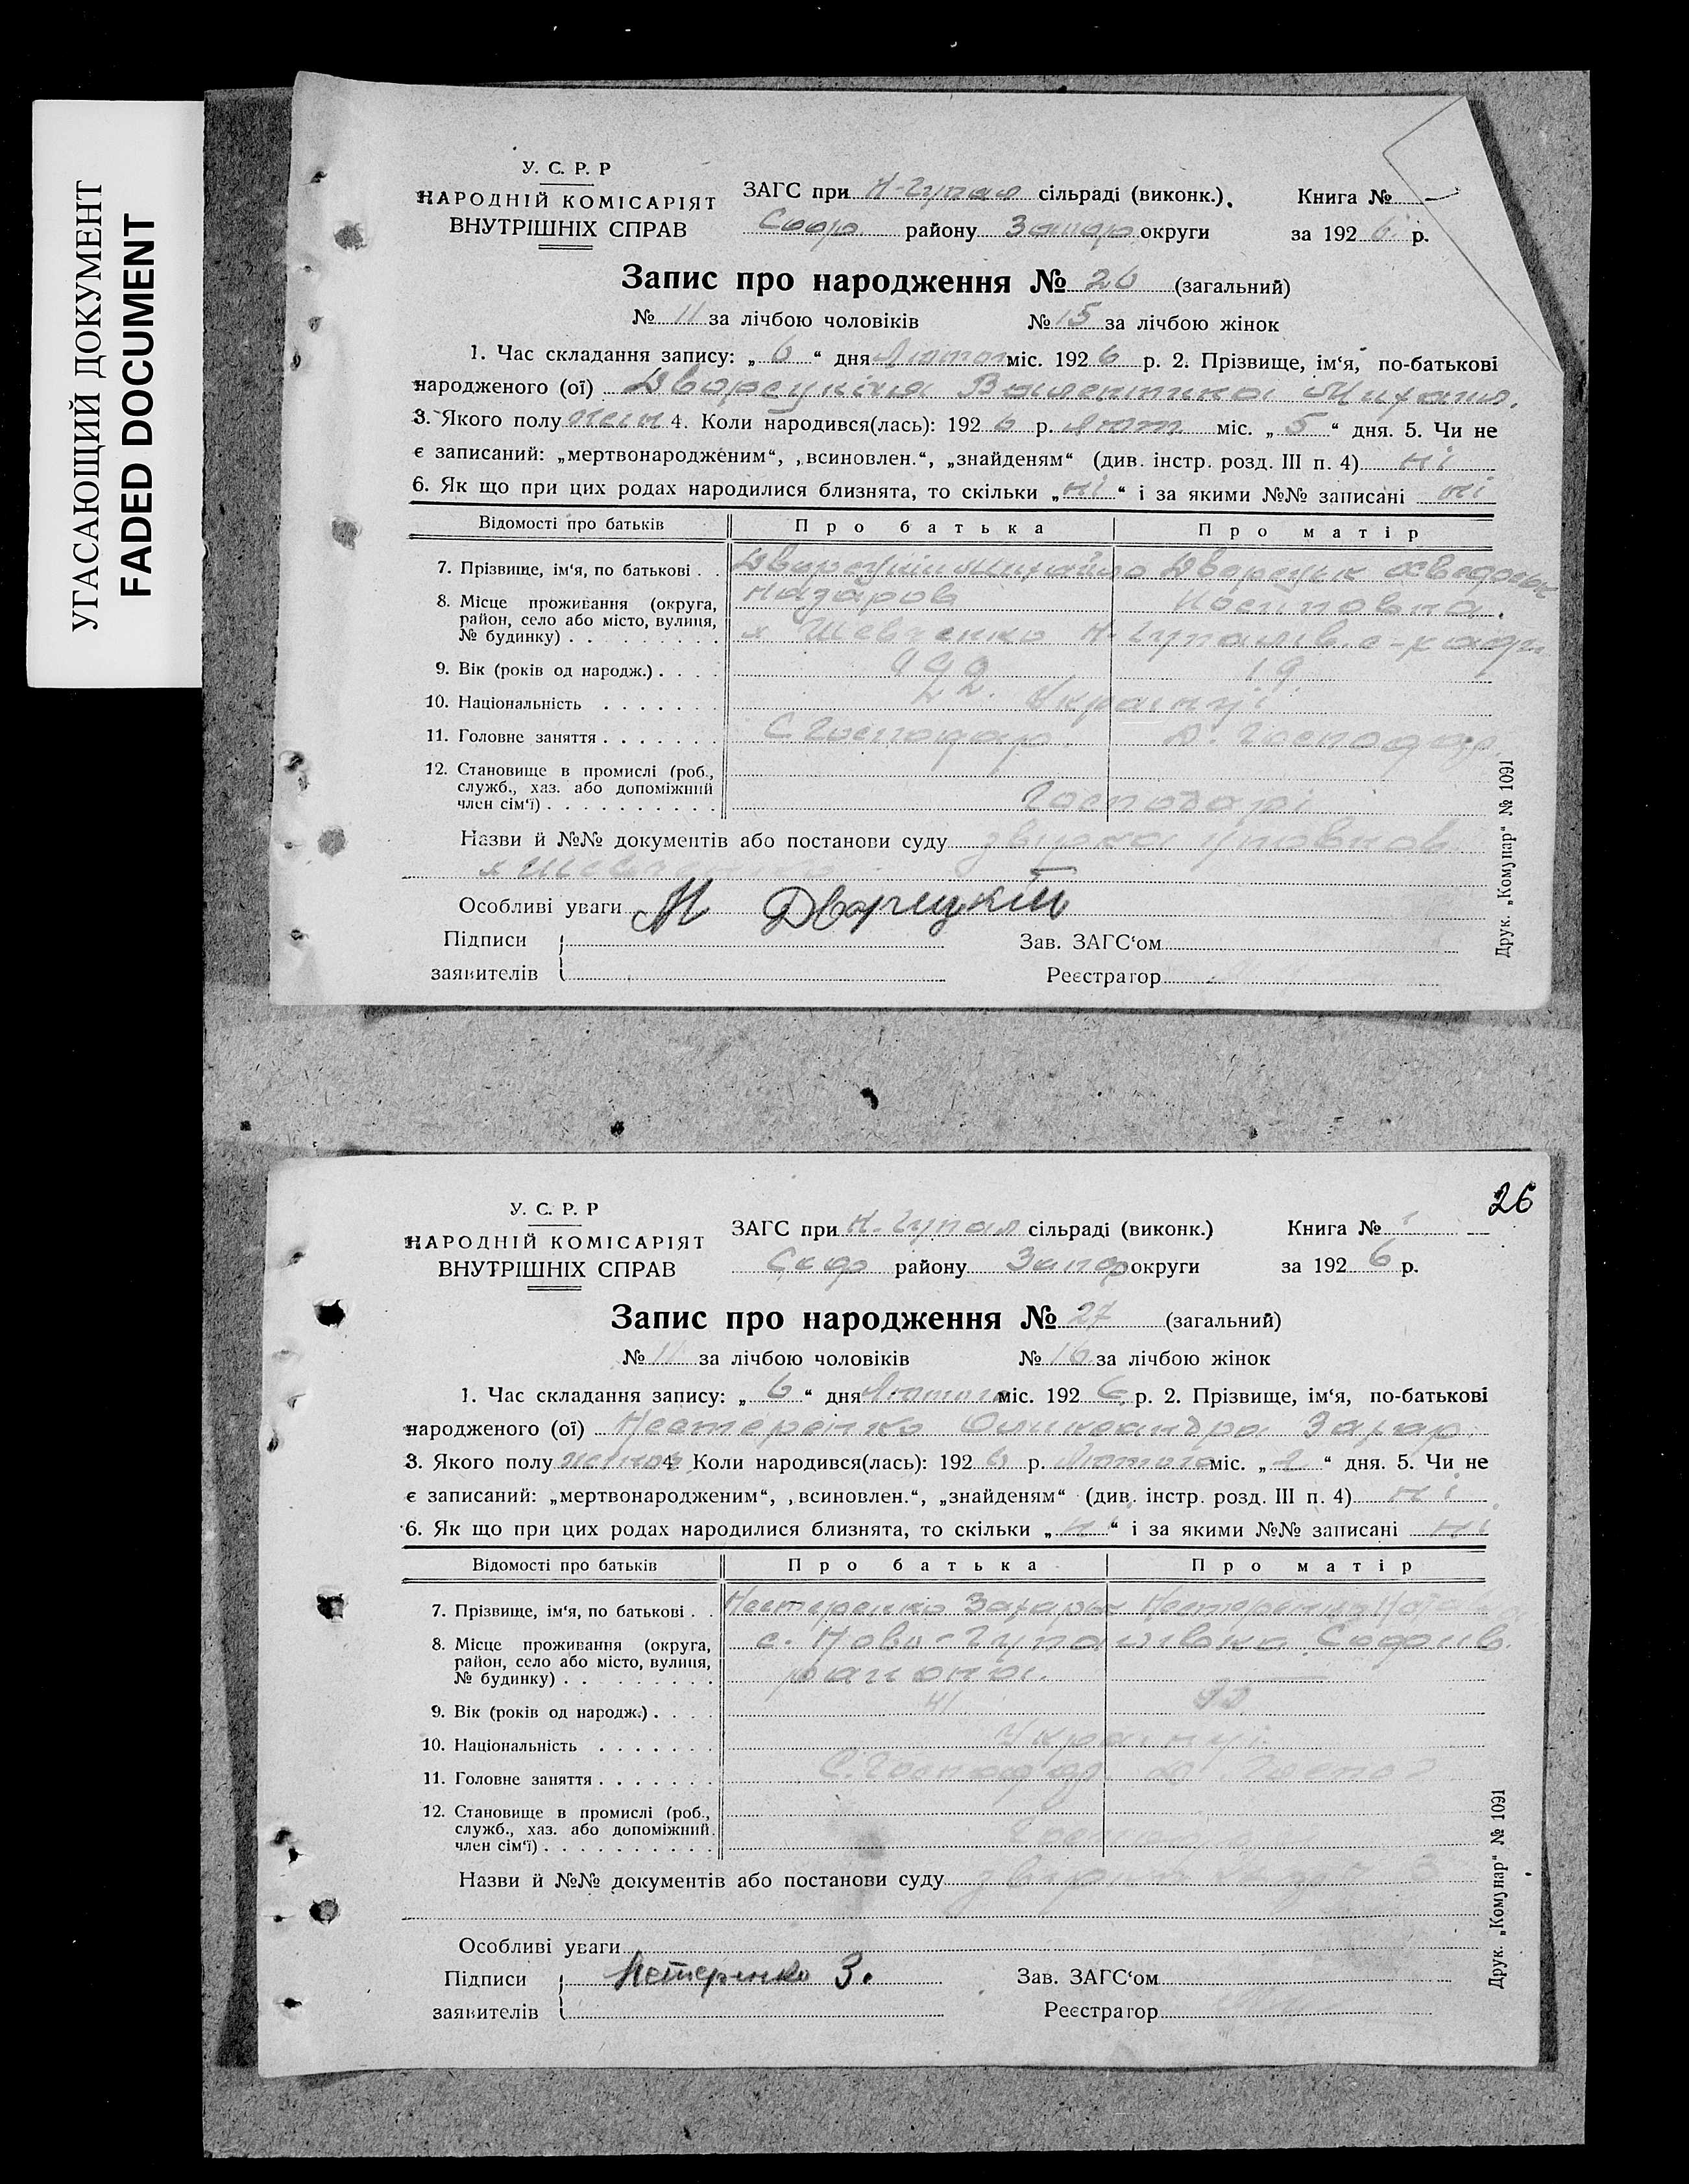 УГАСАЮЩИЙ ДОКУМЕНТ
FADED DOCUMENT
У. С. Р. Р
НАРОДНІЙ КОМІСАРІЯТ
ВНУТРІШНІХ СПРАВ
ЗАГС при Н-Гупал сільраді (виконк.). Книга №
Соф району Запор округи за 192 6 р.
Запис про народження № 26 (загальний)
№ 11 за лічбою чоловіків № 15 за лічбою жінок
1. Час складання запису: „ 6 “ дня лютого міс. 192 6 р. 2. Прізвище, ім‘я, по-батькові
народженого (ої) Валентина Михайл.
3. Якого полу жін 4. Коли народився(лась): 192 6 р. Лют міс. „ 5 “ дня. 5. Чи не
є записаний: „мертвонародженим“, „всиновлен.“, „знайденям“ (див. інстр. розд. III п. 4) ні
6. Як що при цих родах народилися близнята, то скільки „ ні “ і за якими №№ записані ні
Відомості про батьків Про батька Про матір
7. Прізвище, ім‘я, по батькові . . Михайло
Назаров Йосиповна.
8. Місце проживання (округа,
район, село або місто, вулиця,
№ будинку) . . . . . . . . х Шевченко Н.
9. Вік (років од народж.) . . . . 22. 19.
10. Національність . . . . . . . Українці
11. Головне заняття . . . . . . . С Господар. Д. Господар.
12. Становище в промислі (роб.,
служб., хаз. або допоміжний
член сім‘ї) . . . . . . . . . . Господарі
Назви й №№ документів або постанови суду
Особливі уваги М Дворецкій
Підписи Зав. ЗАГС‘ом
заявителів Реєстратор
Друк. „Комунар“ № 1091
26
У. С. Р. Р
НАРОДНІЙ КОМІСАРІЯТ
ВНУТРІШНІХ СПРАВ
ЗАГС при Н. Гупал сільраді (виконк.) Книга №
Соф району Запор округи за 192 6 р.
Запис про народження № 27 (загальний)
№ 11 за лічбою чоловіків № 16 за лічбою жінок
1. Час складання запису: „ 6 “ дня Лютого міс. 192 6 р. 2. Прізвище, ім‘я, по-батькові
народженого (ої) Нестеренко Олександра Захар.
3. Якого полу жіноч 4. Коли народився(лась): 192 6 р. Лютого міс. „ 2 “ дня. 5. Чи не
є записаний: „мертвонародженим“, „всиновлен.“, „знайденям“ (див. інстр. розд. III п. 4) ні
6. Як що при цих родах народилися близнята, то скільки „ ні “ і за якими №№ записані ні
Відомості про батьків Про батька Про матір
7. Прізвище, ім‘я, по батькові . . Нестеренко Захарій Нестеренко
8. Місце проживання (округа, с. Ново-Гупалівка Софіїв.
район, село або місто, вулиця,
№ будинку) . . . . . . . . району.
9. Вік (років од народж.) . . . . 41
10. Національність . . . . . . . Українці
11. Головне заняття . . . . . . . С. Господар. Д. Господ
12. Становище в промислі (роб.,
служб., хаз. або допоміжний
член сім‘ї) . . . . . . . . . .
Назви й №№ документів або постанови суду
Особливі уваги
Підписи Нетеренко З. Зав. ЗАГС‘ом
заявителів Реєстратор
Друк. „Комунар“ № 1091